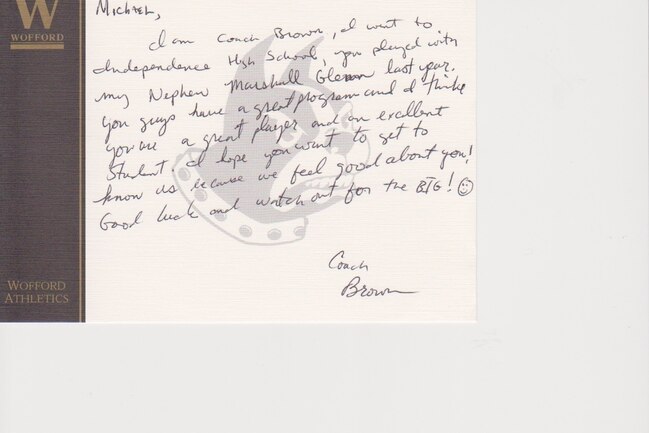 W
WOFFORD
Michael,
I am Coach Brown, I went to
Independence High School, you played with
my Nephew Marshall Glenn last year.
You guys have a great program and I think
you are a great player and an excellent
Student. I hope you want to get to
know us because we feel good about you!
Good luck and watch out for the BIG!
Coach
Brown
WOFFORD
ATHLETICS